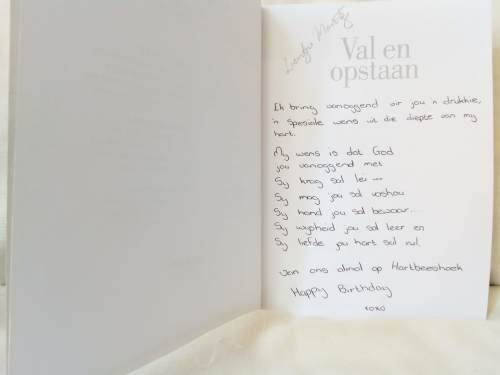 Val en
opstaan
Ek bring vanoggend vir jou 'n drukkie,
'n spesiale wens uit die diepte van my
hart.
My wens is dat God
jou vanoggend met
Sy krag sal lei ...
Sy mag jou sal vashou
Sy hand jou sal bewaar...
Sy wysheid jou sal leer en
Sy liefde jou hart sal vul.
van ons almal op Hartbeeshoek
Happy Birthday
xoxo